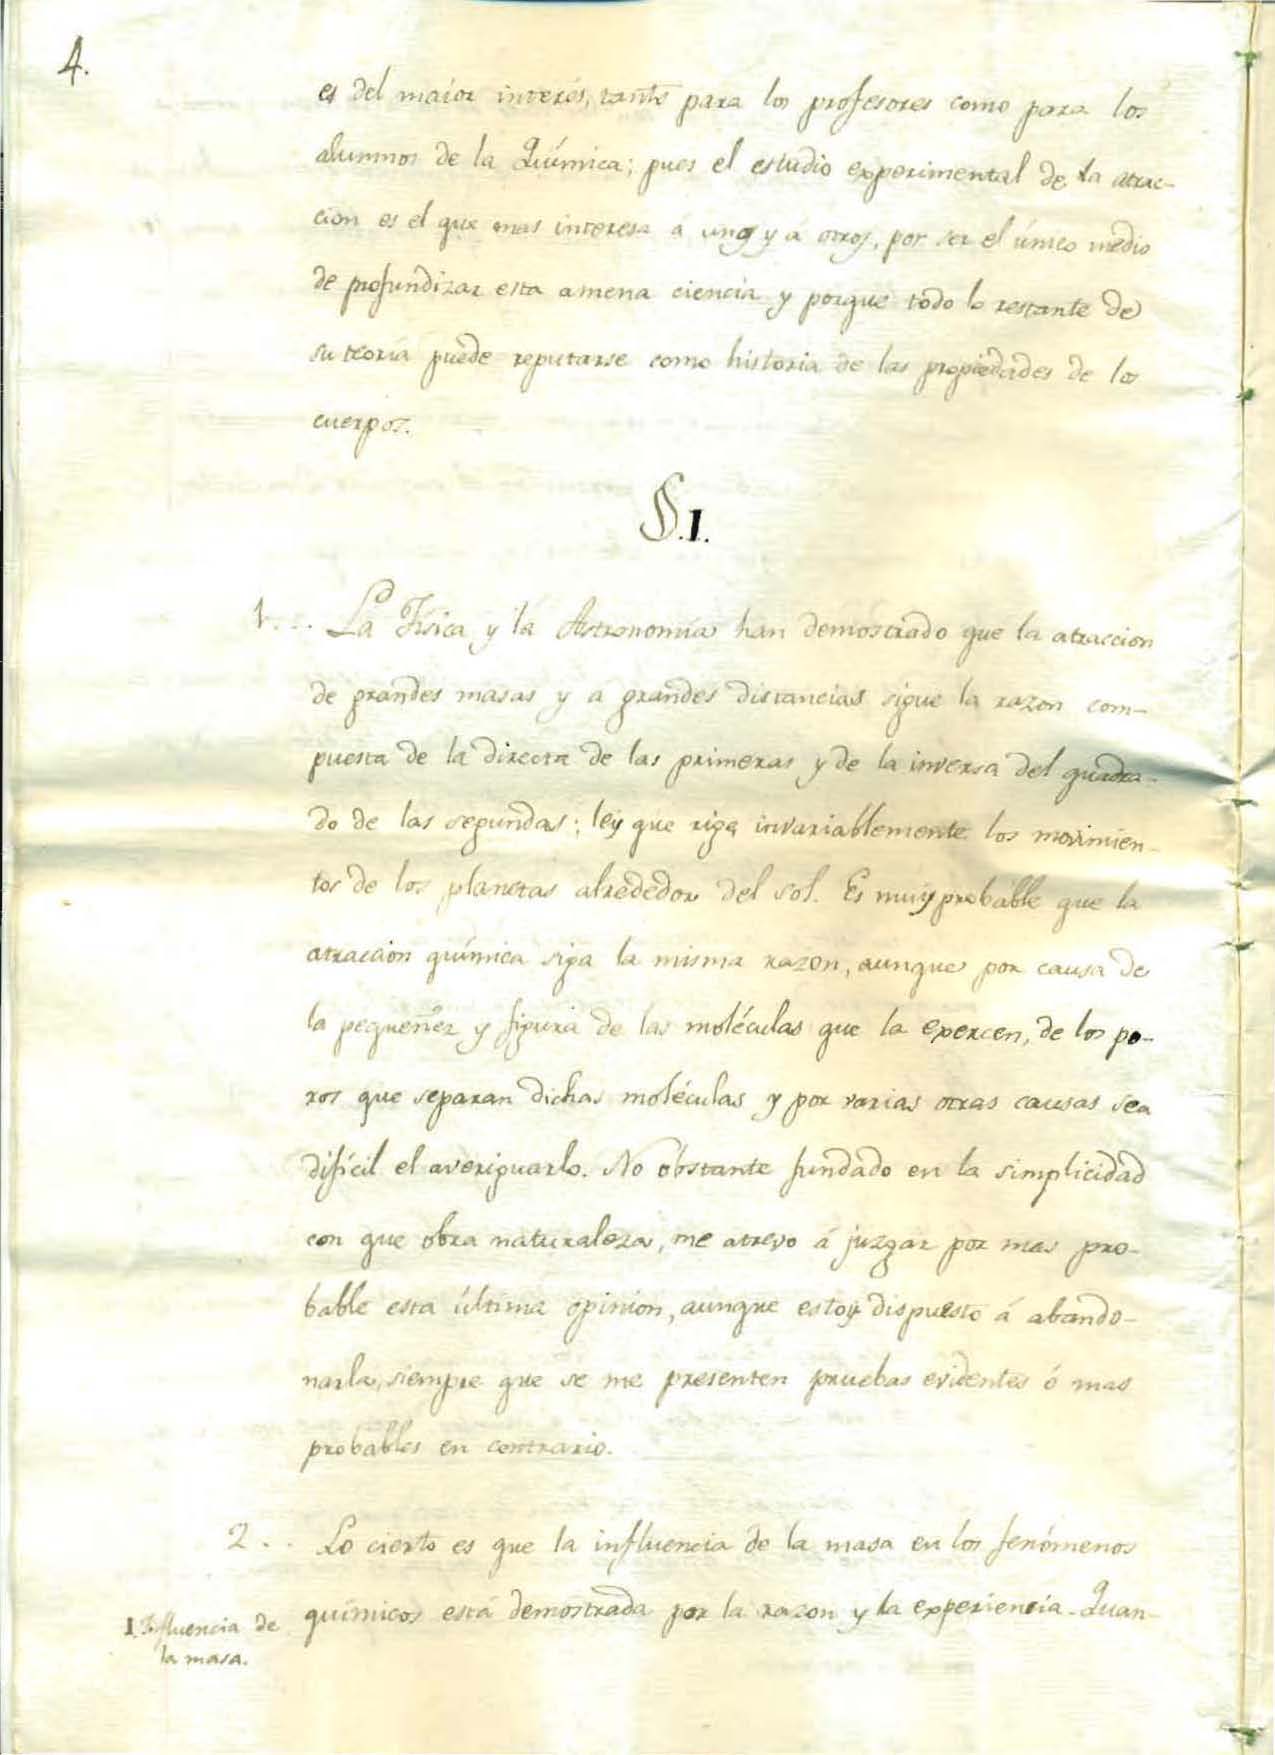 4.
es del maior interés, tanto para los profesores como para los
alumnos de la Química; pues el estudio experimental de la atrac-
cion es el que mas interesa á unos y á otros, por ser el único medio
de profundizar esta amena ciencia y porque todo lo restante de
su teoría puede reputarse como historia de las propiedades de los
cuerpos.
§. I.
1... La Física y la Astronomía han demostrado que la atraccion
de grandes masas y a grandes distancias sigue la razon com-
puesta de la directa de las primeras y de la inversa del quadra-
do de las segundas; ley que rige invariablemente los movimien-
tos de los planetas alrededor del sol. Es muy probable que la
atraccion química siga la misma razon, aunque por causa de
la pequeñez y figura de las moléculas que la exercen, de los po-
ros que separan dichas moléculas y por varias otras causas sea
dificil el averiguarlo. No obstante fundado en la simplicidad
con que obra naturaleza, me atrevo á juzgar por mas pro-
bable esta última opinion, aunque estoy dispuesto á abando-
narla, siempre que se me presenten pruebas evidentes ó mas
probables en contrario.
2.. Lo cierto es que la influencia de la masa en los fenómenos
químicos está demostrada por la razon y la experiencia. Quan-
1. Influencia de
la masa.